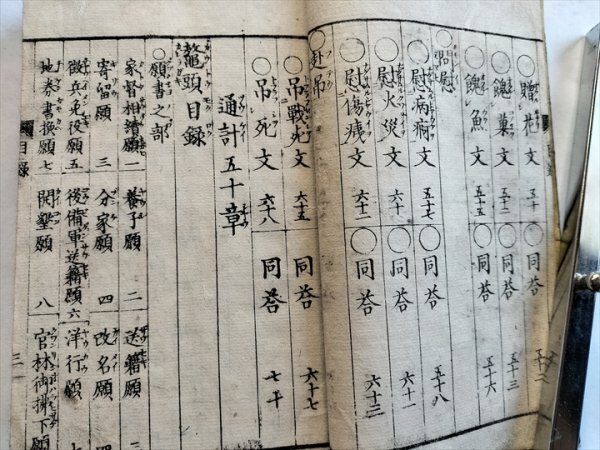 ○贈花文 五十 ○同荅
○餽菓文 五十二 ○同荅 五十三
○餽魚文 五十五 ○同荅 五十六
○問慰
○慰病痾文 五十七 ○同荅 五十八
○慰火災文 六十 ○同荅 六十一
○慰傷痍文 六十二 ○同荅 六十三
○赴吊
○吊戰死文 六十五 同荅 六十七
○吊死文 六十八 同荅 七十
通計五十章
鼇頭目録
○願書之部
家督相續願 一 養子願 二 送籍願
寄留願 三 分家願 四 改名願 四
徴兵免役願 五 後備軍送籍願 六 洋行願
地券書換願 七 開墾願 八 官林御拂下願
目録 三